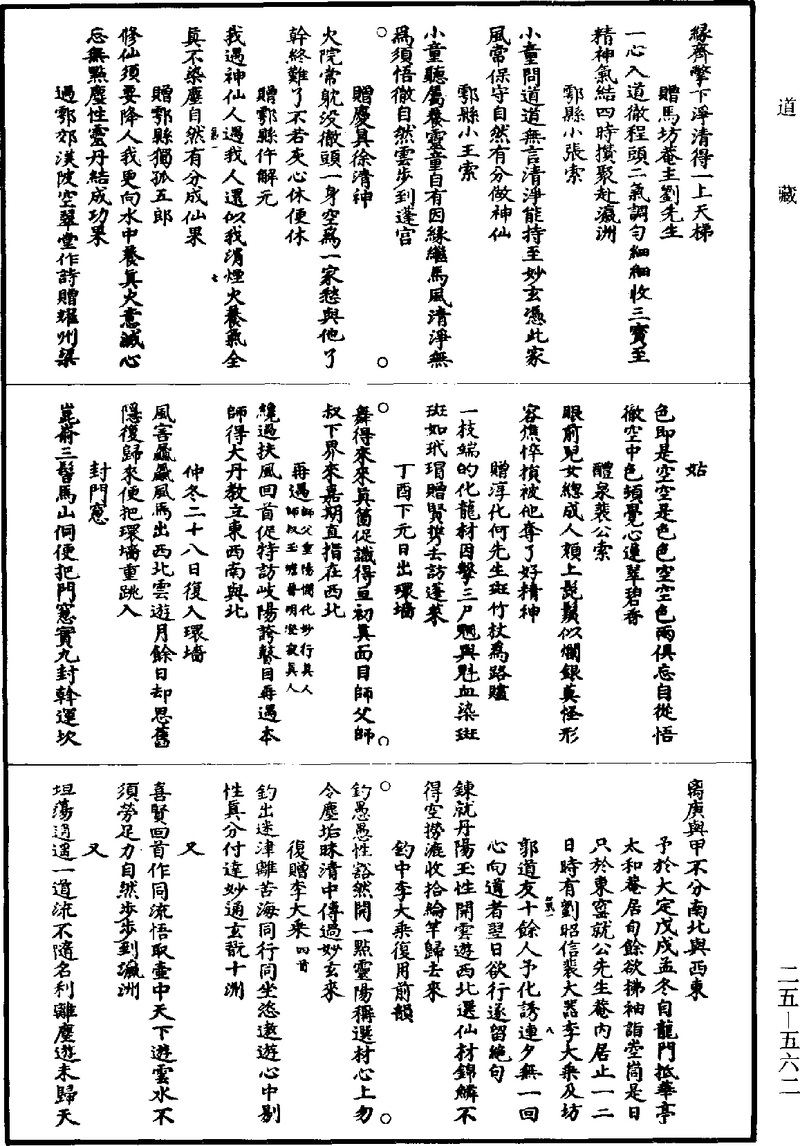 道藏
緣齊擎下淨清得一上天梯
贈馬坊菴主劉先生
一心入道徹程頭二氣調勻細細收三寶至
精神氣結四時攢聚赴瀛洲
鄠縣小張索
小童問道道無言清淨能持至妙玄憑此家
風常保守自然有分做神仙
鄠縣小王索
小童聽屬養靈童自有因緣繼馬風清淨無
為須悟徹自然雲步到蓬宫
贈虔真徐清神
火院常躭没徹頭一身空爲一家愁與他了
幹終難了不若灰心休便休
贈鄠縣仵解元
我遇神仙人遇我人還似我清煙火養氣全
真不染塵自然有分成仙果
贈鄠縣獨孤五郎
修仙須要降人我更向水中養真火意滅心
忘無點塵性靈丹結成功果
過鄠郊渼陂空翠堂作詩贈耀州梁
姑
色即是空空是色色空空色兩俱忘自從悟
徹空中色頓覺心蓮翠碧香
醴泉裴公索
眼前兒女總成人頦上髭鬚似爛銀莫怪形
容憔悴損被他奪了好精神
贈淳化何先生斑竹杖爲路贐
一枝端的化龍材因擊三尸魍與魁血染斑
斑如玳瑁贈賢携去訪蓬萊
丁酉下元日出環墻
舞得來來真箇促識得亘初真面目師父師
叔下界來嘉期直指在西北
再過師父重陽憫化妙行真人師叔玉蟾普明澄寂真人
繞過扶風回首促特訪岐陽誇瞽目再遇本
師得大丹教立東西南與北
仲冬二十八日復入環墻
風害飊飊風馬出西北雲遊月餘日却思舊
隱復歸來便把環墻重跳入
封門窻
崑嵛三髻馬山侗便把門窻實九封斡運坎
離庚與甲不分南北與西東
予於大定戊戌孟冬自龍門抵華亭
太和菴居旬餘欲拂袖詣崆峒是日
只於東窰就公先生菴內居止一二
日時有劉昭信裴大器李大乘及坊
郭道友十餘人予化誘連夕無一回
心向道者翌日欲行遂留絕句
鍊就丹陽玉性開雲遊西北選仙材錦鱗不
得空撈漉收拾綸竿歸去來
釣中李大乘復用前韻
釣愚愚性豁然開一點靈陽稱選材心上勿
令塵垢昧清中傳過妙玄來
復贈李大乘四首
釣出迷津離苦海同行同坐恣遨遊心中剔
性真分付達妙通玄翫十洲
又
喜賢回首作同流悟取壷中天下遊雲水不
須勞足力自然步步到瀛洲
又
坦蕩逍遥一道流不隨名利離塵遊未歸天
二五—五六二